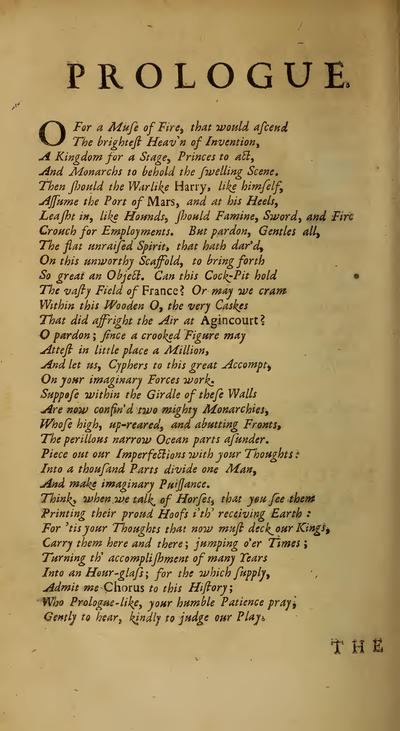 PROLOGUE.
O For a Muſe of Fire, that would aſcend
The brighteſt Heav'n of Invention,
A Kingdom for a Stage, Princes to act,
And Monarchs to behold the ſwelling Scene.
Then ſhould the Warlike Harry, like himſelf,
Aſſume the Port of Mars, and at his Heels,
Leaſht in, like Hounds, ſhould Famine, Sword, and Fire
Crouch for Employments. But pardon, Gentles all,
The flat unraiſed Spirit, that hath dar'd,
On this unworthy Scaffold, to bring forth
So great an Object. Can this Cock-Pit hold
The vaſty Field of France? Or may we cram
Within this Wooden O, the very Caskes
That did affright the Air at Agincourt?
O pardon; ſince a crooked Figure may
Atteſt in little place a Million,
And let us, Cyphers to this great Accompt,
On your imaginary Forces work.
Suppoſe within the Girdle of theſe Walls
Are now confin'd two mighty Monarchies,
Whoſe high, up-reared, and abutting Fronts,
The perillous narrow Ocean parts aſunder.
Piece out our Imperfections with your Thoughts:
Into a thouſand Parts divide one Man,
And make imaginary Puiſſance.
Think, when we talk of Horſes, that you ſee them
Printing their proud Hoofs i'th' receiving Earth:
For 'tis your Thoughts that now muſt deck our Kings,
Carry them here and there; jumping o'er Times;
Turning th' accompliſhment of many Years
Into an Hour-glaſs; for the which ſupply,
Admit me Chorus to this Hiſtory;
Who Prologue-like, your humble Patience pray,
Gently to hear, kindly to judge our Play.
THE